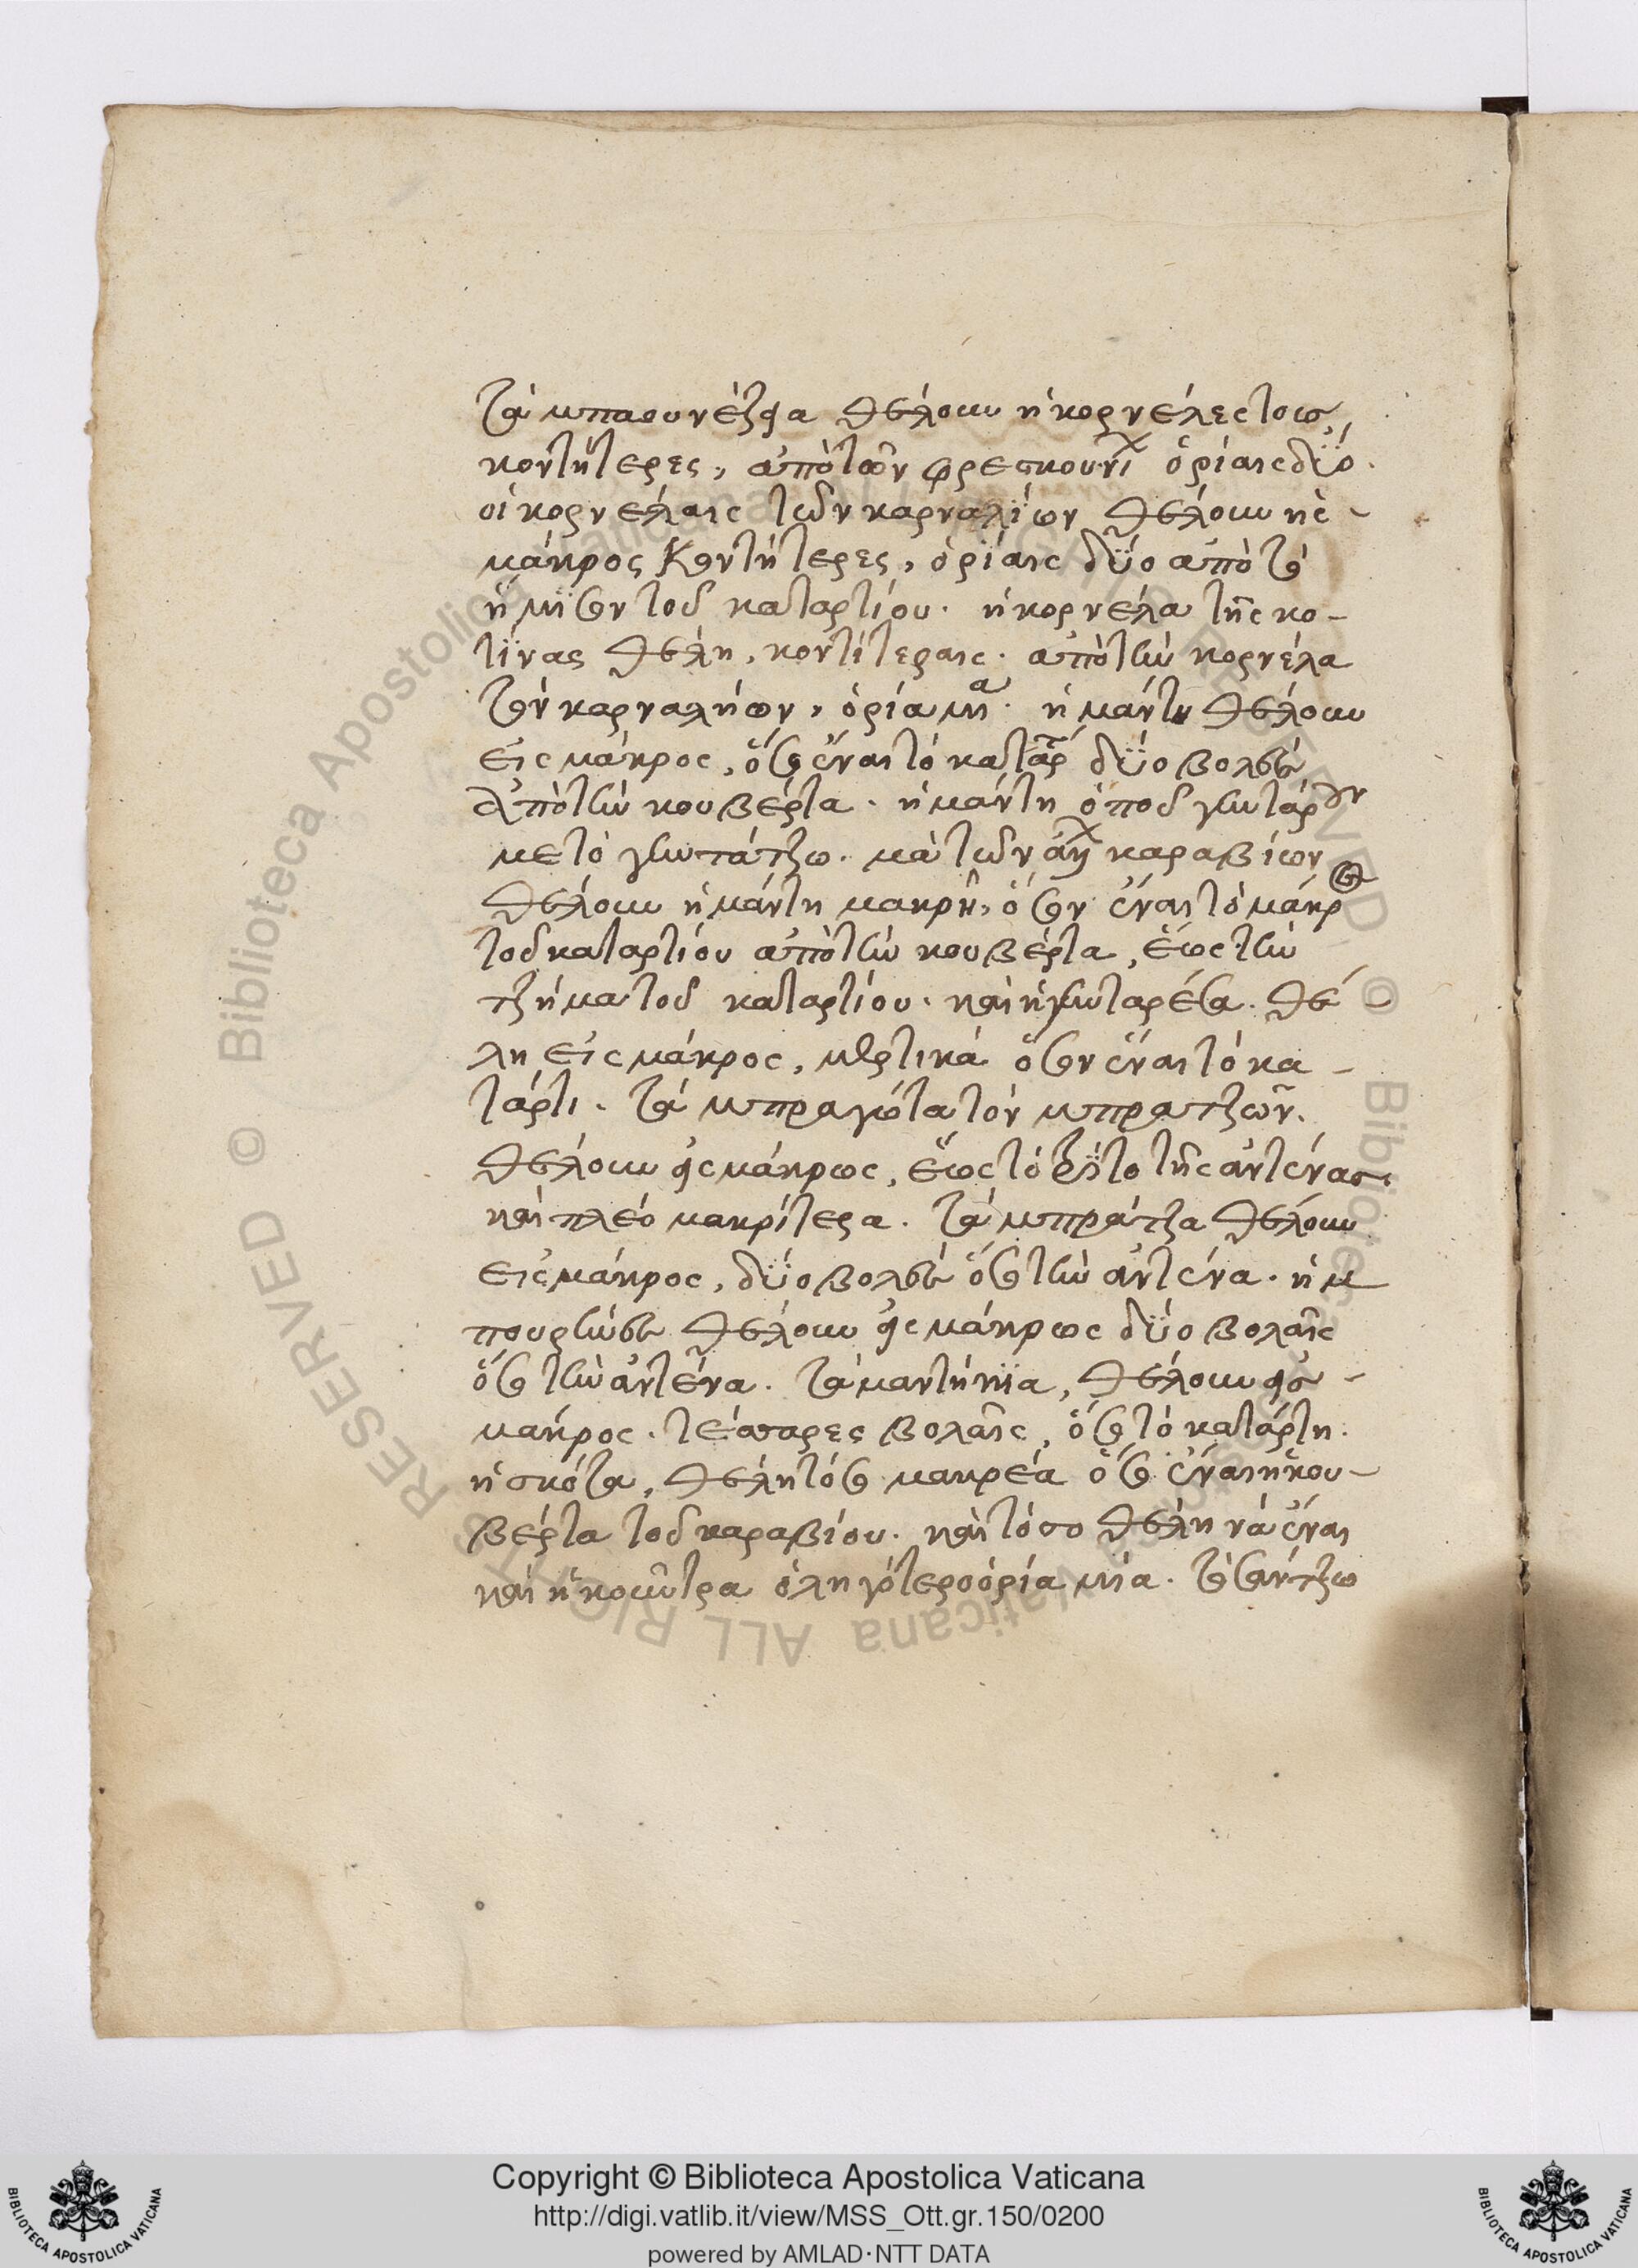 τὰ μπαουνέζια θέλουν ἡ κορνέλες τους
κοντήτερες, ἀπὸ τῶν φρεσκουνι ὀρίαις δύο.
οἱ κορνέλαις τῶν καρναλίων θέλουν ἠς -
μάκρος κοντήτερες, ὀρίαις δύο ἀπὸ τὸ
ἥμισον τοῦ καταρτίου. ἡ κορνέλα τῆς κο-
τίνας θέλη, κοντίτεραις. ἀπὸ τὴν κορνέλα
τὸν καρναλήων, ὀρία μία. ἡ μάντη θέλουν
εἰς μάκρος, ὅτο ἔναι τὸ κατάρτ δύο βολαῖς
ἀπὸ τὴν κουβέρτα. ἡ μάντη ὁποῦ γινταρουν
με τὸ γιντάτζο. μὰ τῶν καραβίων
θέλουν ἡ μάντη μακρὴ, ὅτον ἔναι τὸ μάκρος
τοῦ καταρτίου ἀπὸ τὴν κουβέρτα, ἕως τὴν
τζήμα τοῦ καταρτίου. καὶ ἡ γινταρέσα. θέ -
λη εἰς μάκρος, μερτικά ὅτον ἔναι τὸ κα -
τάρτι. τὰ μπραγότα τὸν μπρατζῶν.
θέλουν εἰς μάκρως, ἕως τὸ τρίτο τῆς ἀντένας
καὶ πλεό μακρίτερα. τὰ μπράτζα θέλουν
εἰς μάκρος, δύο βολαῖς ὅτο τὴν ἀντένα. ἡ μ
πουρίναις θέλουν εἰς μάκρως δύο βολαῖς
ὅτο τὴν ἀντένα. τὰ μαντήνια, θέλουν εἰς -
μάκρος. τέσσαρες βολαῖς, ὅτο τὸ κατάρτη.
ἡ σκότα, θέλη τόσο μακρέα ὅσο ἔναι ἡ κου-
βέρτα τοῦ καραβίου. καὶ τόσο θέλη νὰ ἔναι
καὶ ἡ κοντρα ὀληγότερο ὀρία μία. τὸ σάντζο